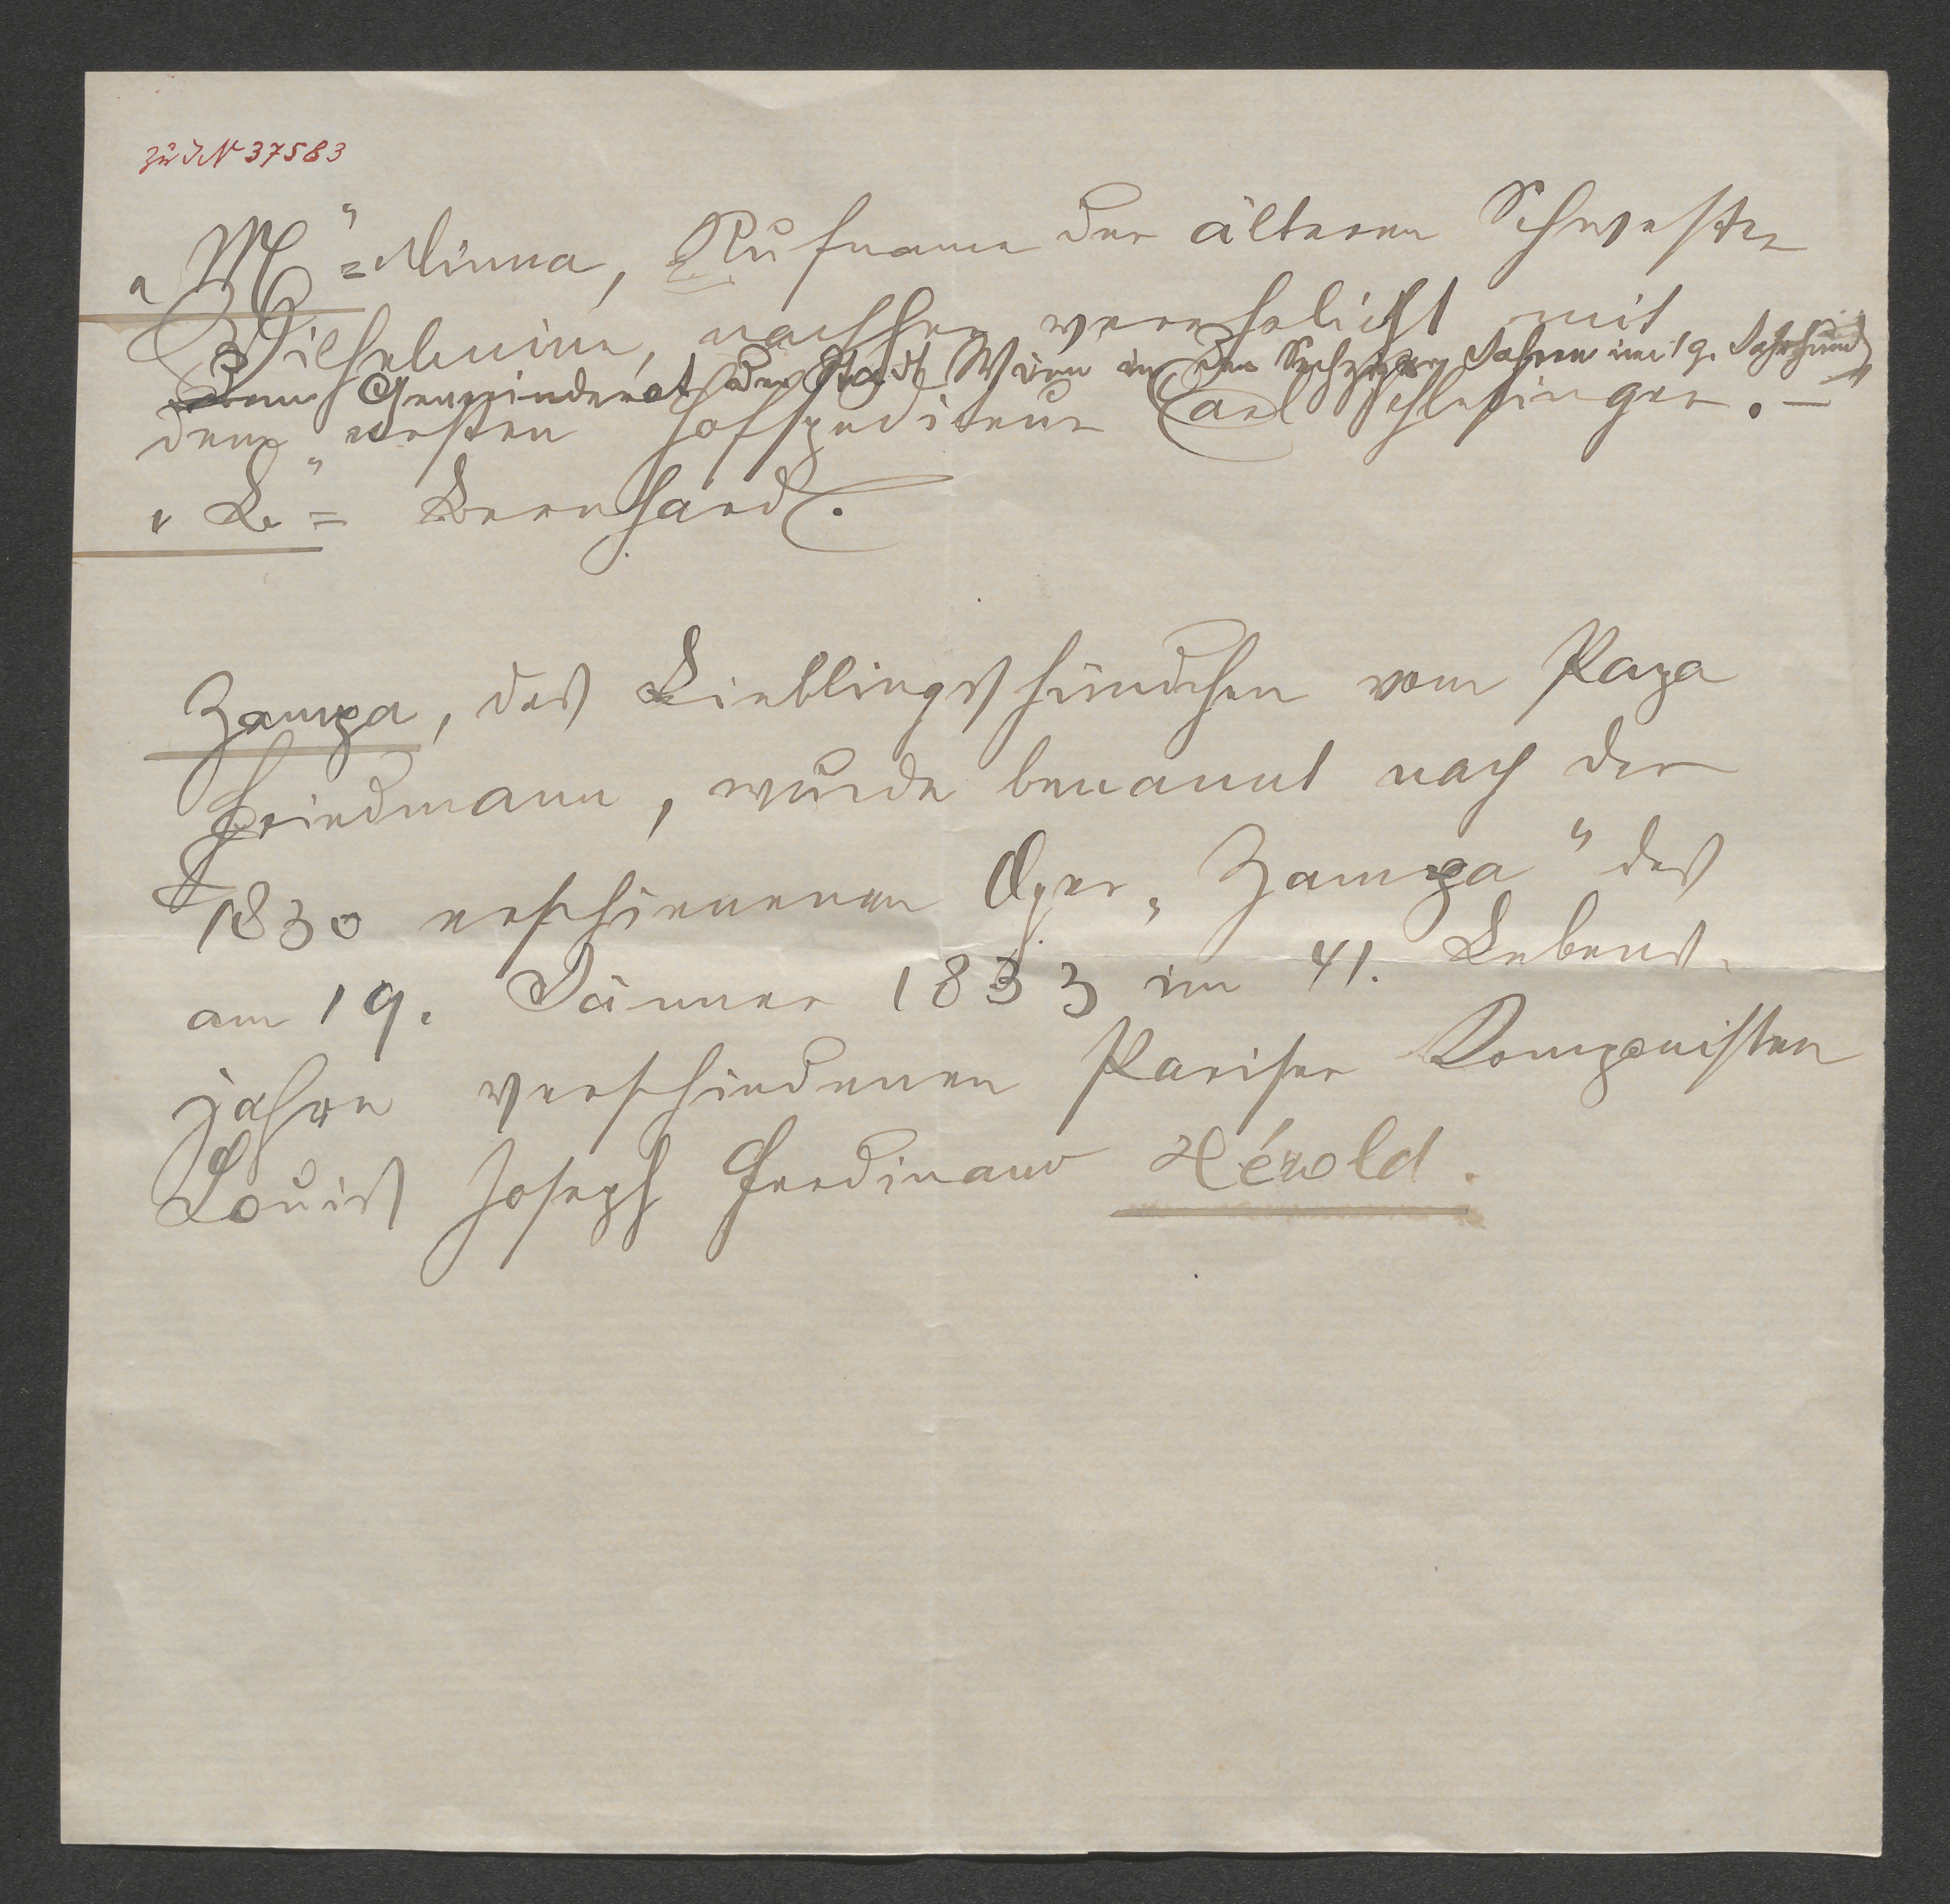 zu IN 37583
„M“ = Minna, Rufname der älteren Schwester
Wilhelmine, nachher verehelicht mit
dem Gemeinderat der Stadt Wien in den Sechziger Jahren im 19. Jahrhund
dem ersten Hofspediteur Carl Schlesinger. —
„B“ = Bernhard.
Zampa, das Lieblingshündchen vom Papa
Friedmann, wurde benannt nach der
1830 erschienenen Oper „Zampa“ des
am 19. Jänner 1833 im 41. Lebens-
jahre verschiedenen Pariser Componisten
Louis Joseph Ferdinand Hérold.